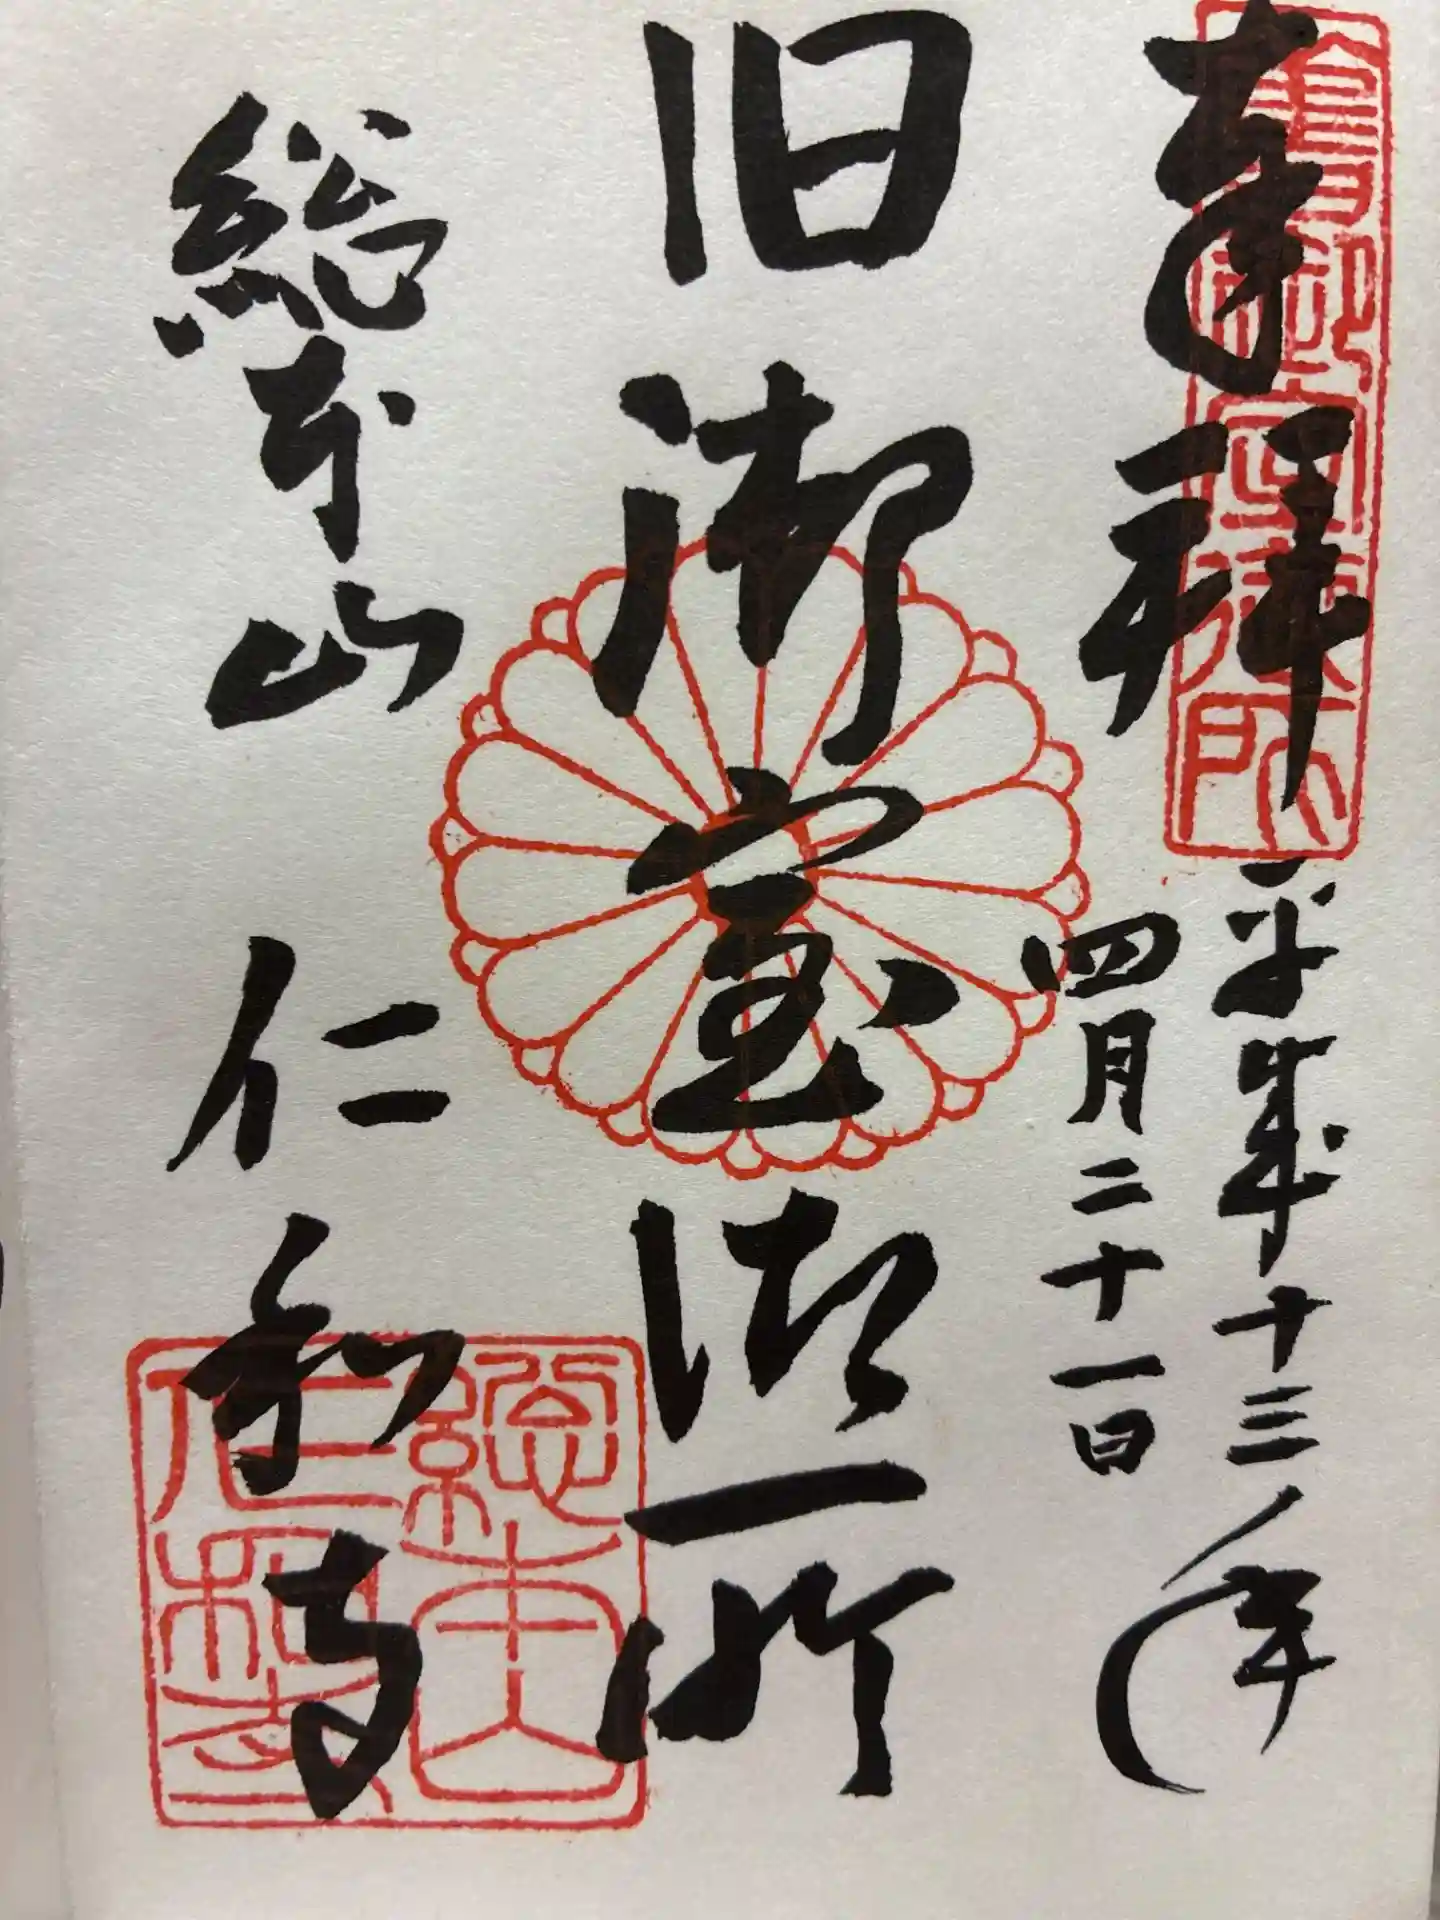 奉拝
平成十三年
四月二十一日
旧御室御所
総本山 仁和寺
総本山
仁和寺